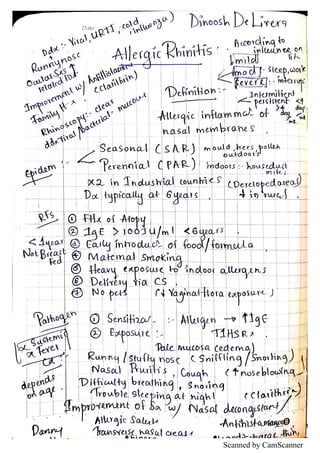 Date:
Dinoosh De Livera
DDx :- Viral URTI, cold, influenza)
Runnynose
Ocular Sx
related to
Improvement w/ Antihistamine
(Claritin)
Family Hx
Rhinoscopy :- clear mucous
Allergic Rhinitis :-
According to
influence on
life
mild
mod
severe
Sleep, work
Intermittent
persistent
Definition :-
Allergic inflammatn of
nasal membranes
Epidem :-
Seasonal (SAR) mould, trees, pollen
outdoors
Perennial (PAR) indoors :- housedust
mite,
x2 in Industrial countries (Developed areas)
Dx typically at 6years
RFs
① FHx of Atopy
② IgE > 100 IU/ml <6years
③ Early introductn of food/formula
< 1year
Not Breast
Fed
④ Maternal Smoking
⑤ Heavy exposure to indoor allergens
⑥ Delivery via CS
⑦ No pets
(↓ Vaginal flora exposure)
Pathogen
① Sensitizatn :- Allergen → ↑IgE
② Exposure :- T1HSRx
Sx
Systemic
Fever
depends
on age
Pale mucosa (edema)
Runny / stuffy nose (Sniffling / Snorting)
Nasal Pruritis, Cough (↑ noseblowing
Difficulty breathing, Snoring
Trouble sleeping at night
(Claritin)
Improvement of Sx w/ Nasal decongestant /
Antihistamine
Allergic Salute
Danny
Transverse nasal crease
thin,
Scanned by CamScanner